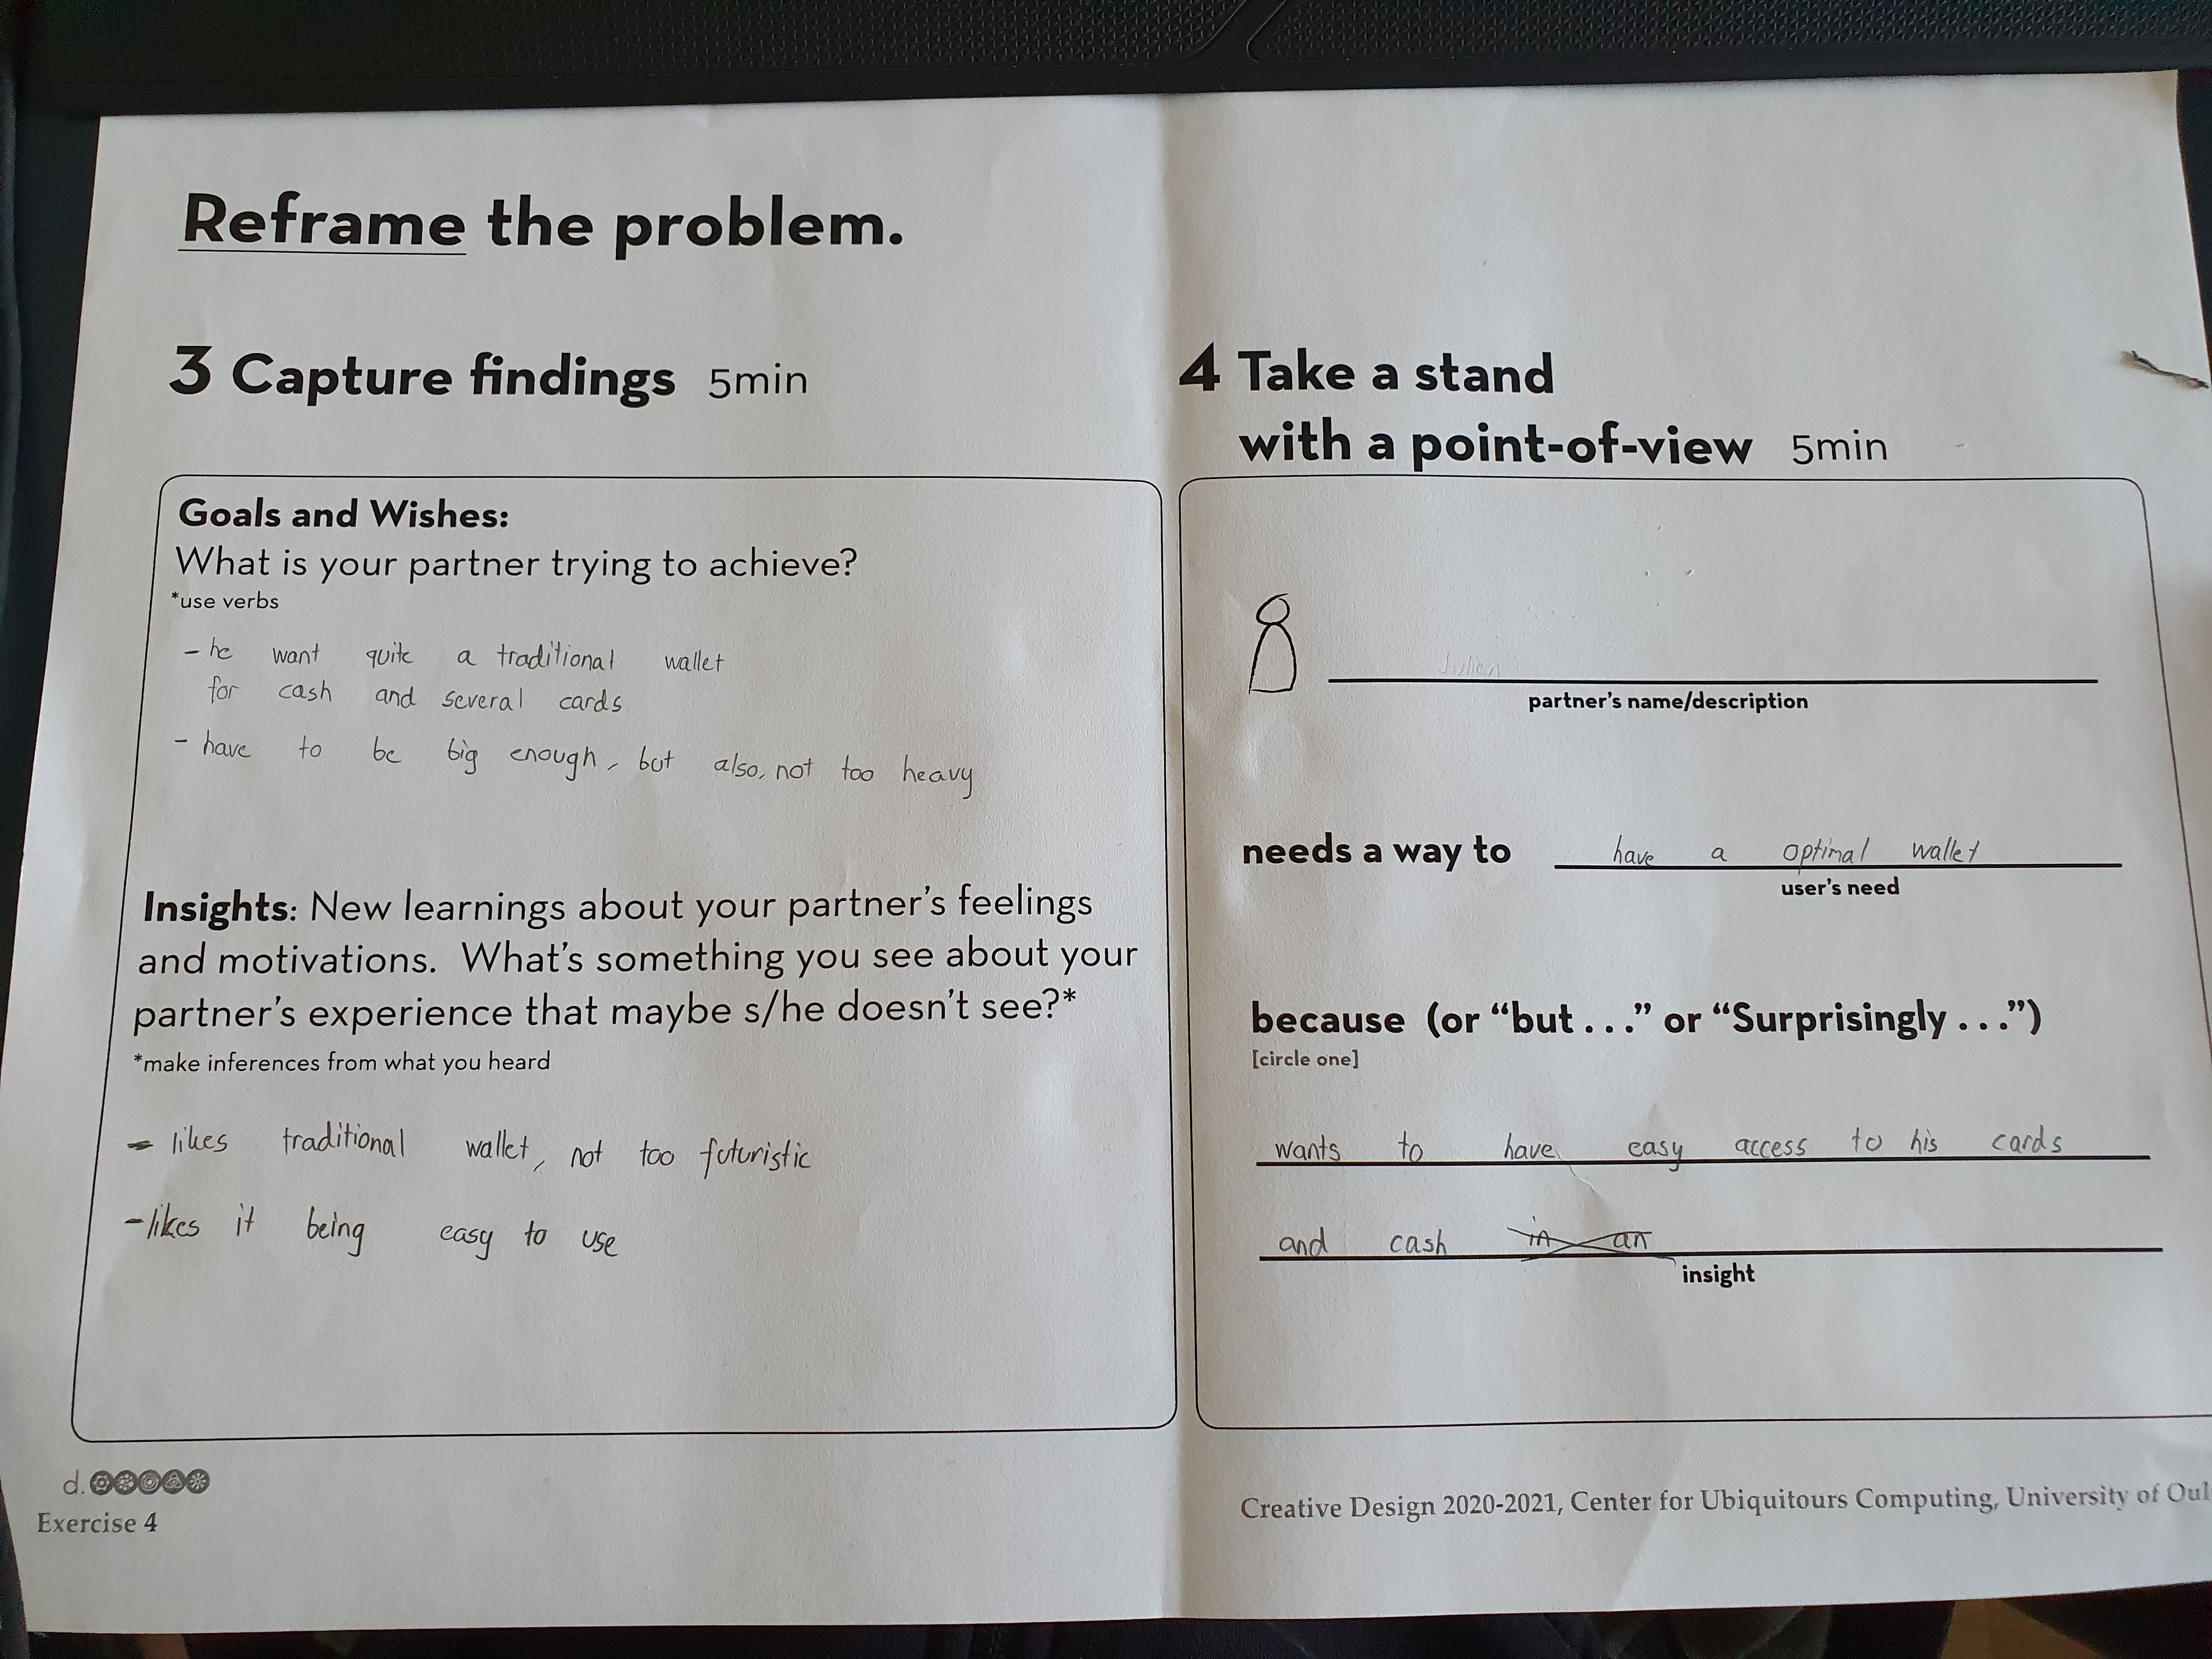 Reframe the problem.
3 Capture findings 5min
Goals and Wishes:
What is your partner trying to achieve?
*use verbs
- he want quite a traditional wallet
for cash and several cards
- have to be big enough, but also, not too heavy
Insights: New learnings about your partner's feelings
and motivations. What's something you see about your
partner's experience that maybe s/he doesn't see?*
*make inferences from what you heard
- likes traditional wallet, not too futuristic
- likes it being easy to use
4 Take a stand
with a point-of-view 5min
Julien
partner's name/description
needs a way to have a optimal wallet
user's need
because (or “but . . .” or “Surprisingly . . .”)
[circle one]
wants to have easy access to his cards
and cash in an
insight
d.
Exercise 4
Creative Design 2020-2021, Center for Ubiquitours Computing, University of Oul